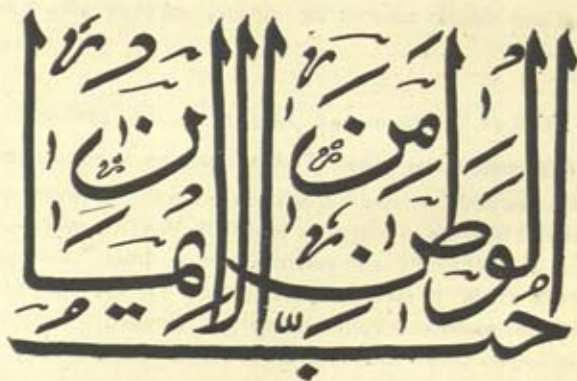 حُبُّ الوَطَنِ مِنَ الاِيمَانِ